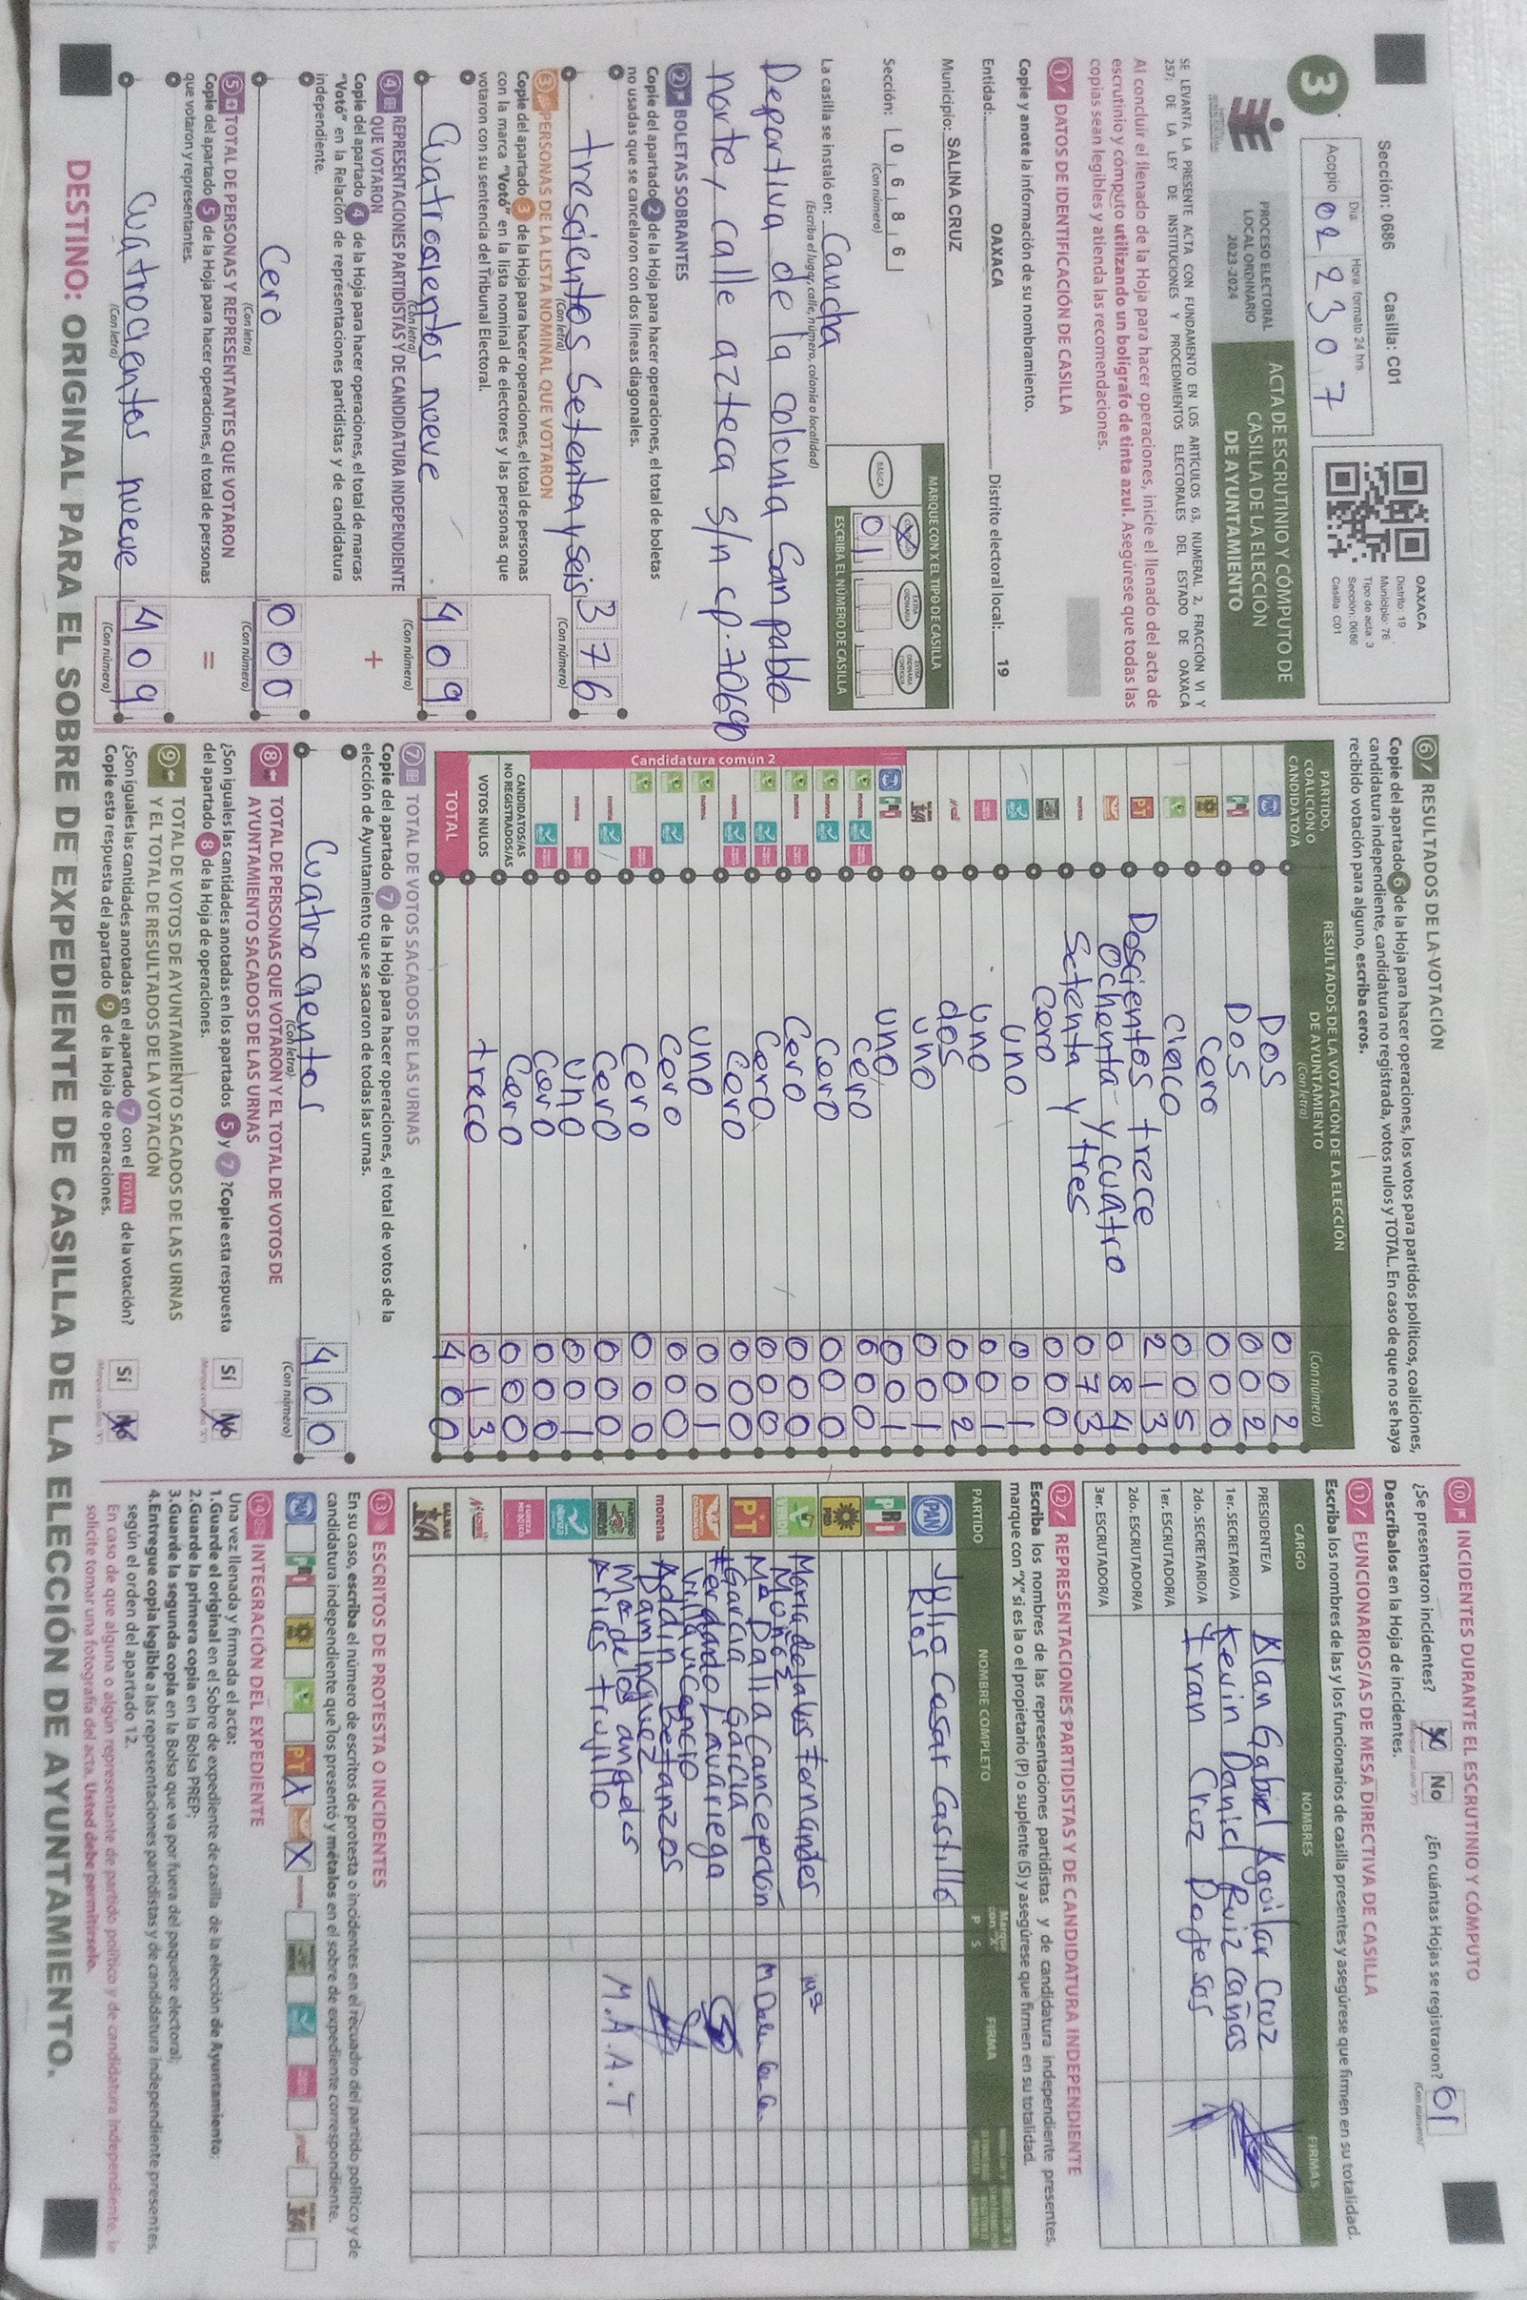 3
Sección: 0686 Casilla: C01
Día Hora: formato 24 hrs
Acopio 02 2307
OAXACA
Distrito: 19
Municipio: 76
Tipo de acta: 3
Sección: 0686
Casilla: C01
PROCESO ELECTORAL
LOCAL ORDINARIO
2023-2024
ACTA DE ESCRUTINIO Y CÓMPUTO DE
CASILLA DE LA ELECCIÓN
DE AYUNTAMIENTO
SE LEVANTA LA PRESENTE ACTA CON FUNDAMENTO EN LOS ARTÍCULOS 63, NUMERAL 2, FRACCIÓN VI Y
257; DE LA LEY DE INSTITUCIONES Y PROCEDIMIENTOS ELECTORALES DEL ESTADO DE OAXACA
Al concluir el llenado de la Hoja para hacer operaciones, inicie el llenado del acta de
escrutinio y cómputo utilizando un bolígrafo de tinta azul. Asegúrese que todas las
copias sean legibles y atienda las recomendaciones.
1 DATOS DE IDENTIFICACIÓN DE CASILLA
Copie y anote la información de su nombramiento.
Entidad: OAXACA Distrito electoral local: 19
Municipio: SALINA CRUZ
Sección: 0 6 8 6
(Con número)
MARQUE CON X EL TIPO DE CASILLA
BÁSICA X
01
ESCRIBA EL NÚMERO DE CASILLA
La casilla se instaló en: Cancha
(Escriba el lugar, calle, número, colonia o localidad)
Deportiva de la colonia San pablo
norte, calle azteca s/n cp. 70690
2 BOLETAS SOBRANTES
Copie del apartado 2 de la Hoja para hacer operaciones, el total de boletas
no usadas que se cancelaron con dos líneas diagonales.
trescientos setenta y seis 376
(Con letra) (Con número)
3 PERSONAS DE LA LISTA NOMINAL QUE VOTARON
Copie del apartado 3 de la Hoja para hacer operaciones, el total de personas
con la marca "Votó" en la lista nominal de electores y las personas que
votaron con su sentencia del Tribunal Electoral.
Cuatrocientos nueve 409
(Con letra) (Con número)
4 REPRESENTACIONES PARTIDISTAS Y DE CANDIDATURA INDEPENDIENTE
QUE VOTARON
+
Copie del apartado 4 de la Hoja para hacer operaciones, el total de marcas
"Votó" en la Relación de representaciones partidistas y de candidatura
independiente.
Cero 000
(Con letra) (Con número)
5 TOTAL DE PERSONAS Y REPRESENTANTES QUE VOTARON
=
Copie del apartado 5 de la Hoja para hacer operaciones, el total de personas
que votaron y representantes.
Cuatrocientos nueve 409
(Con letra) (Con número)
6 RESULTADOS DE LA VOTACIÓN
Copie del apartado 6 de la Hoja para hacer operaciones, los votos para partidos políticos, coaliciones,
candidatura independiente, candidatura no registrada, votos nulos y TOTAL. En caso de que no se haya
recibido votación para alguno, escriba ceros.
PARTIDO,
COALICIÓN O
CANDIDATO/A
RESULTADOS DE LA VOTACIÓN DE LA ELECCIÓN
DE AYUNTAMIENTO
(Con letra) (Con número)
Dos 002
Dos 002
Cero 000
Cinco 005
PT Doscientos trece 213
Ochenta y cuatro 084
morena Setenta y tres 073
Cero 000
Uno 001
Uno 001
dos 002
Uno 001
Uno 001
Candidatura común 2
Cero 000
Cero 000
Cero 000
Cero 000
Cero 000
Uno 001
Cero 000
Cero 000
Cero 000
Uno 001
Cero 000
CANDIDATOS/AS
NO REGISTRADOS/AS Cero 000
VOTOS NULOS trece 013
TOTAL 400
7 TOTAL DE VOTOS SACADOS DE LAS URNAS
Copie del apartado 7 de la Hoja para hacer operaciones, el total de votos de la
elección de Ayuntamiento que se sacaron de todas las urnas.
Cuatrocientos 400
(Con letra) (Con número)
8 TOTAL DE PERSONAS QUE VOTARON Y EL TOTAL DE VOTOS DE
AYUNTAMIENTO SACADOS DE LAS URNAS
¿Son iguales las cantidades anotadas en los apartados 5 y 7 ?Copie esta respuesta
del apartado 8 de la Hoja de operaciones.
Sí No
9 TOTAL DE VOTOS DE AYUNTAMIENTO SACADOS DE LAS URNAS
Y EL TOTAL DE RESULTADOS DE LA VOTACIÓN
¿Son iguales las cantidades anotadas en el apartado 7 con el TOTAL de la votación?
Copie esta respuesta del apartado 9 de la Hoja de operaciones.
Sí No
10 INCIDENTES DURANTE EL ESCRUTINIO Y CÓMPUTO
¿Se presentaron incidentes? No ¿En cuántas Hojas se registraron? 01
(Con número)
Descríbalos en la Hoja de incidentes.
11 FUNCIONARIOS/AS DE MESA DIRECTIVA DE CASILLA
Escriba los nombres de las y los funcionarios de casilla presentes y asegúrese que firmen en su totalidad.
CARGO NOMBRES FIRMAS
PRESIDENTE/A Alan Gabriel Aguilar Cruz
1er. SECRETARIO/A Kevin Daniel Ruiz Cañas
2do. SECRETARIO/A Fran Cruz
1er. ESCRUTADOR/A
2do. ESCRUTADOR/A
3er. ESCRUTADOR/A
12 REPRESENTACIONES PARTIDISTAS Y DE CANDIDATURA INDEPENDIENTE
Escriba los nombres de las representaciones partidistas y de candidatura independiente presentes,
marque con "X" si es la o el propietario (P) o suplente (S) y asegúrese que firmen en su totalidad.
PARTIDO NOMBRE COMPLETO Marque con "X" P S FIRMA
PAN Julio Cesar Castillo
Rios
PRI
PRD
VERDE Maria de la luz Fernandes
Muñoz
PT Mª Dalla Concepción
Garcia Garcia
Fernando Lavariega
Villavicencio
morena Addin Betanzos
Daminguez
Ma de los angeles
Arias trujillo M.A.A.T
13 ESCRITOS DE PROTESTA O INCIDENTES
En su caso, escriba el número de escritos de protesta o incidentes en el recuadro del partido político y de
candidatura independiente que los presentó y métalos en el sobre de expediente correspondiente.
PAN PT X X
14 INTEGRACIÓN DEL EXPEDIENTE
Una vez llenada y firmada el acta:
1.Guarde el original en el Sobre de expediente de casilla de la elección de Ayuntamiento;
2.Guarde la primera copia en la Bolsa PREP;
3.Guarde la segunda copia en la Bolsa que va por fuera del paquete electoral;
4.Entregue copia legible a las representaciones partidistas y de candidatura independiente presentes,
según el orden del apartado 12.
En caso de que alguna o algún representante de partido político y de candidatura independiente, le
solicite tomar una fotografía del acta. Usted debe permitírselo.
DESTINO: ORIGINAL PARA EL SOBRE DE EXPEDIENTE DE CASILLA DE LA ELECCIÓN DE AYUNTAMIENTO.